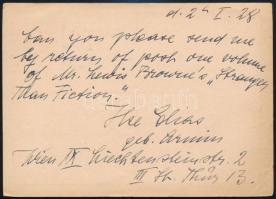 d. 2ᵗ I. 28
Can you please send me
by return of post one volume
of Mr. Lewis Browne's „Stranger
Than Fiction."
Ilse
geb. Armin
Wien IX Liechtensteinstr. 2
III St. Thür 13.